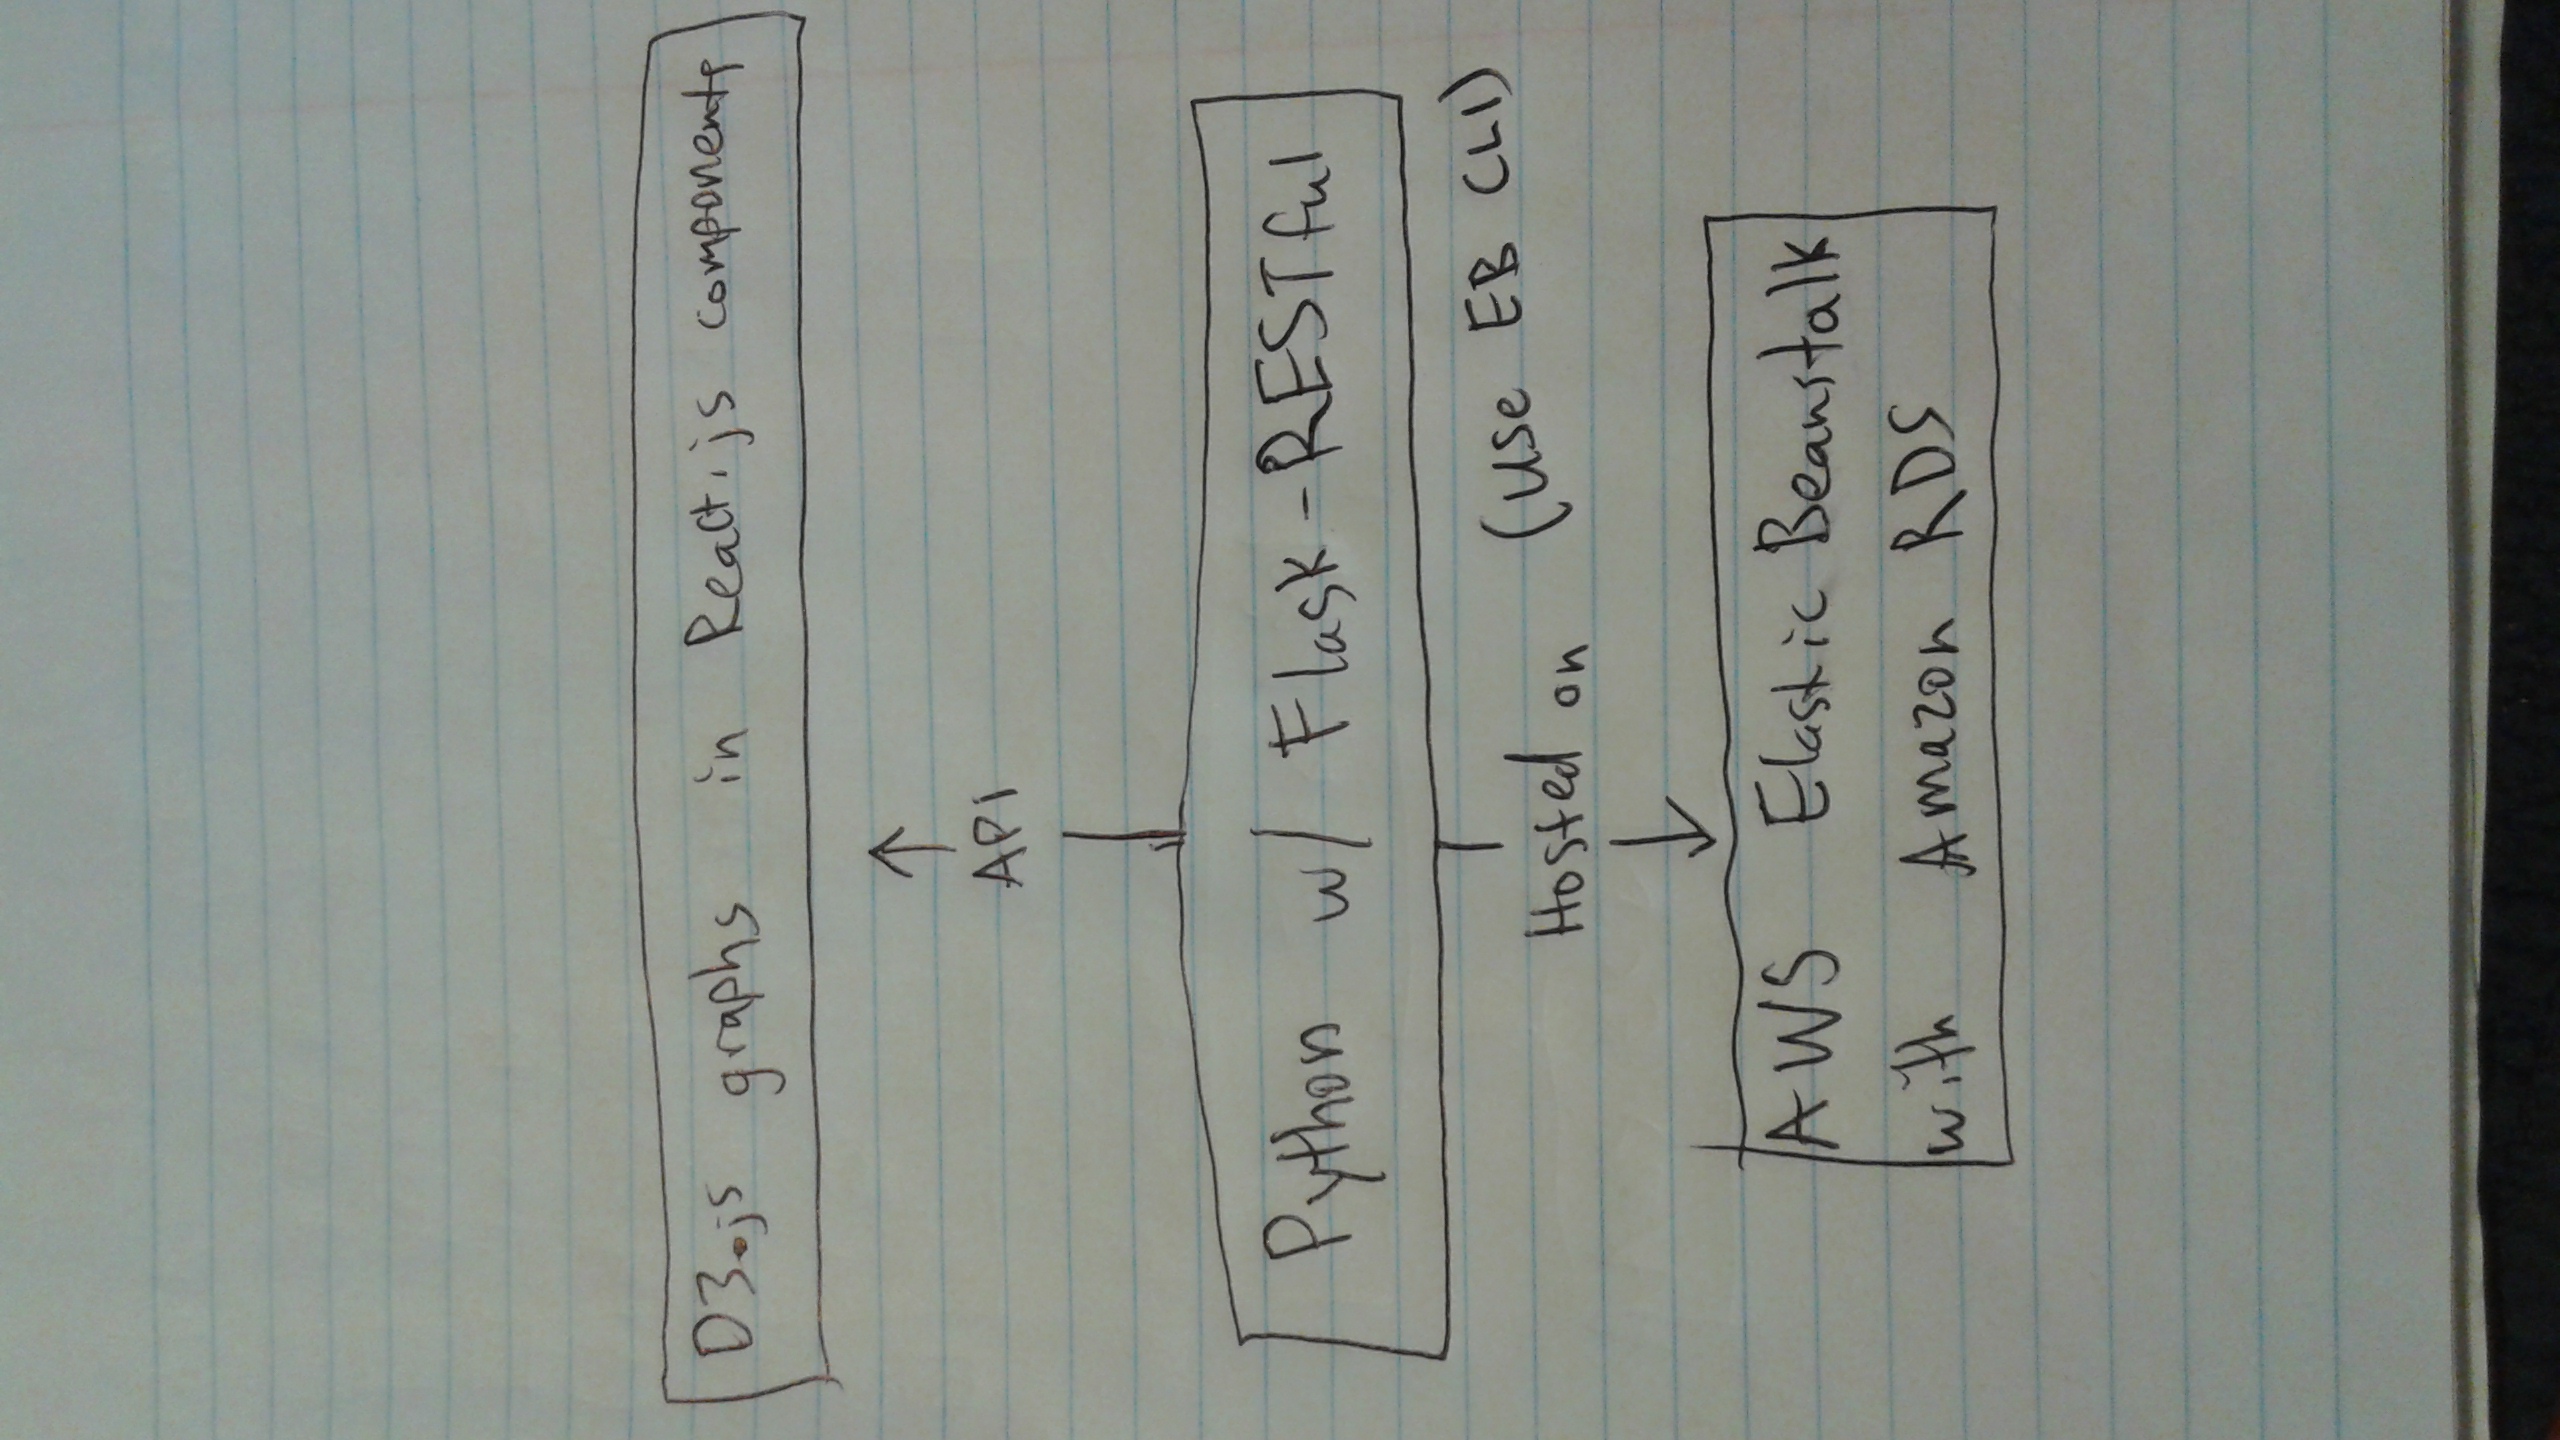 D3.js graphs in React.js components
API
Python w/ Flask-RESTful
Hosted on (use EB CLI)
AWS Elastic Beanstalk
with Amazon RDS